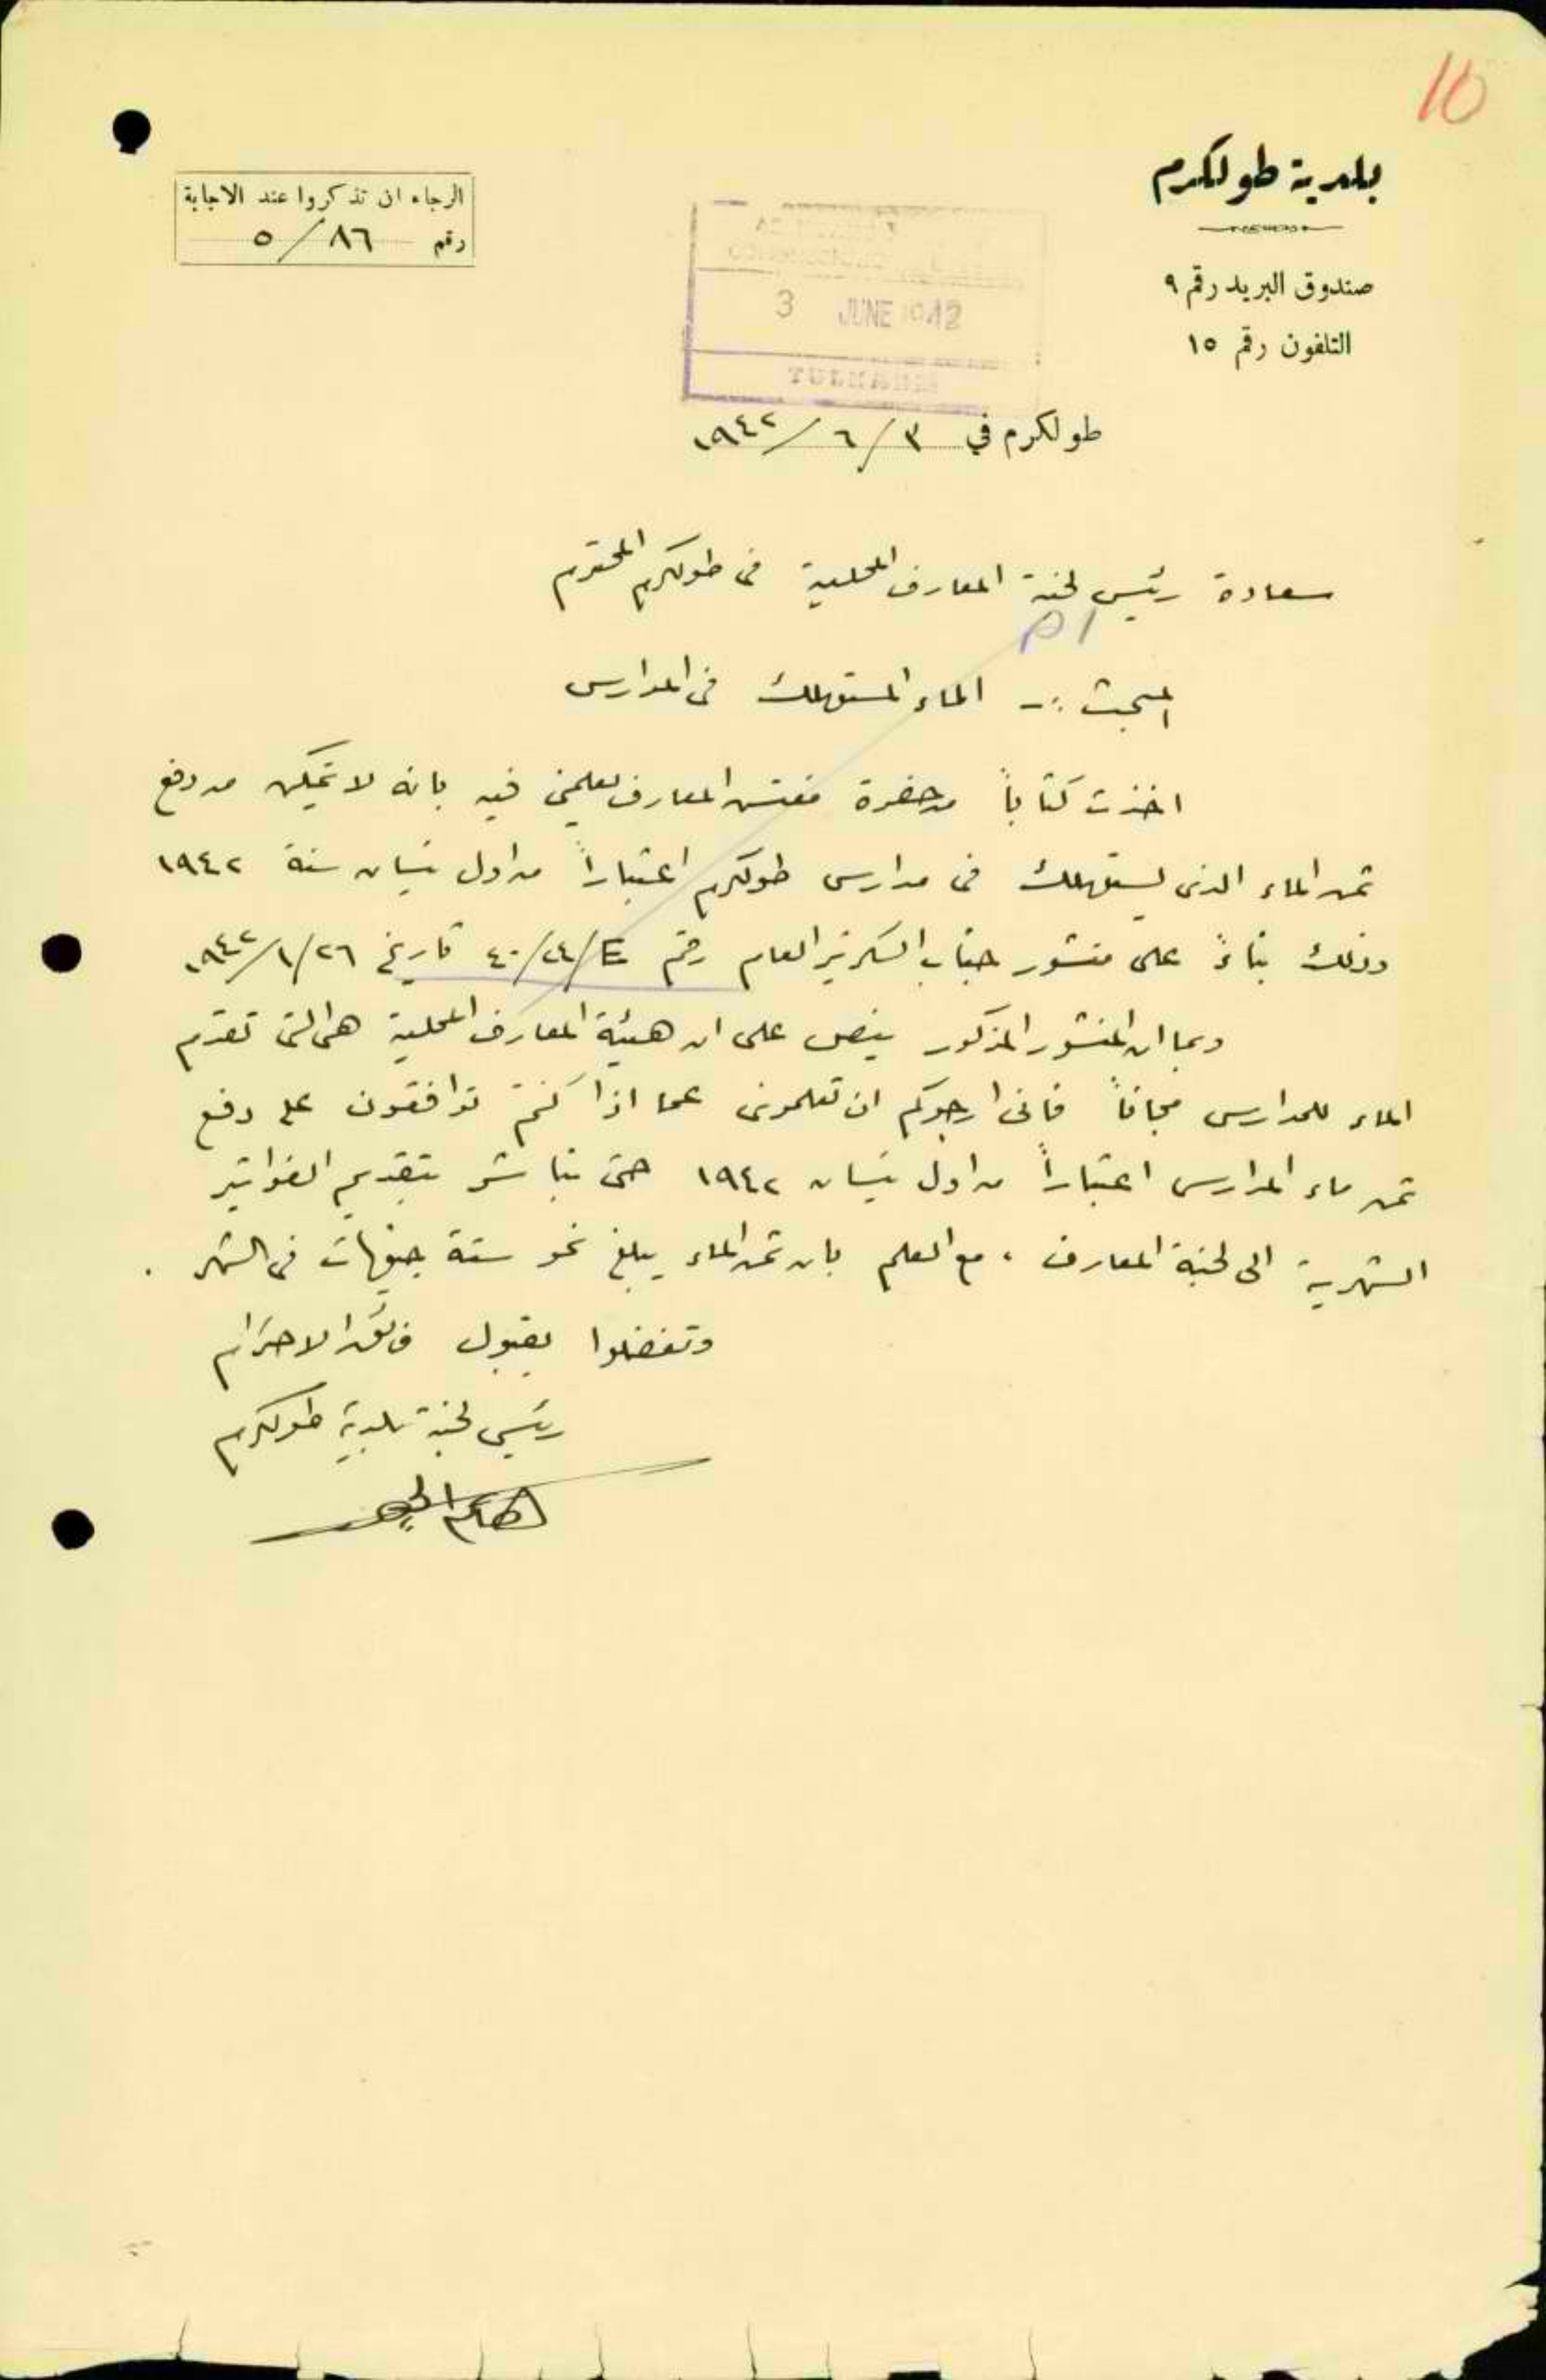 10
بلدية طولكرم
صندوق البريد رقم ٩
التلفون رقم ١٥
الرجاء ان تذكروا عند الاجابة
رقم ٨٦/٥
3 JUNE 1942
TULKARM
طولكرم في ٣/٦/١٩٤٢
سعادة رئيس لجنة المعارف المحلية في طولكرم المحترم
المبحث :- الماء المستهلك في المدارس
اخذت كتاباً من حضرة مفتش المعارف يعلمني فيه بانه لا يتمكن من دفع
ثمن الماء الذي يستهلك في مدارس طولكرم اعتباراً من اول نيسان سنة ١٩٤٢
وذلك بناءً على منشور جناب السكرتير العام رقم E/٢٤/٤٠ تاريخ ٢٦/١/١٩٤٢
وبما ان المنشور المذكور ينص على ان هيئة المعارف المحلية هي التي تقدم
الماء للمدارس مجاناً فاني ارجوكم ان تعلموني عما اذا كنتم توافقون على دفع
ثمن ماء المدارس اعتباراً من اول نيسان ١٩٤٢ حتى نباشر بتقديم الفواتير
الشهرية الى لجنة المعارف ، مع العلم بان ثمن الماء يبلغ نحو ستة جنيهات في الشهر .
وتفضلوا بقبول فائق الاحترام
رئيس لجنة بلدية طولكرم